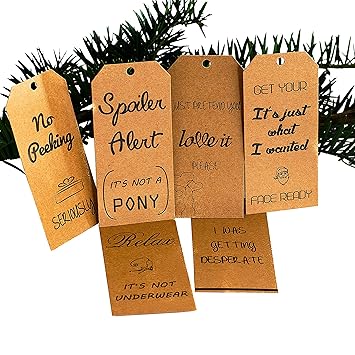 No
Peeking
SERIOUSLY
Spoiler
Alert
(IT'S NOT A
PONY)
JUST PRETEND YOU
love it
PLEASE
GET YOUR
It's just
what
I wanted
FACE READY
Relax
IT'S NOT
UNDERWEAR
I WAS
GETTING
DESPERATE